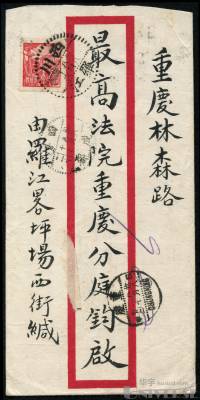 重慶林森路
最高法院重慶分庭鈞啟
由羅江畧坪場西街緘
四川